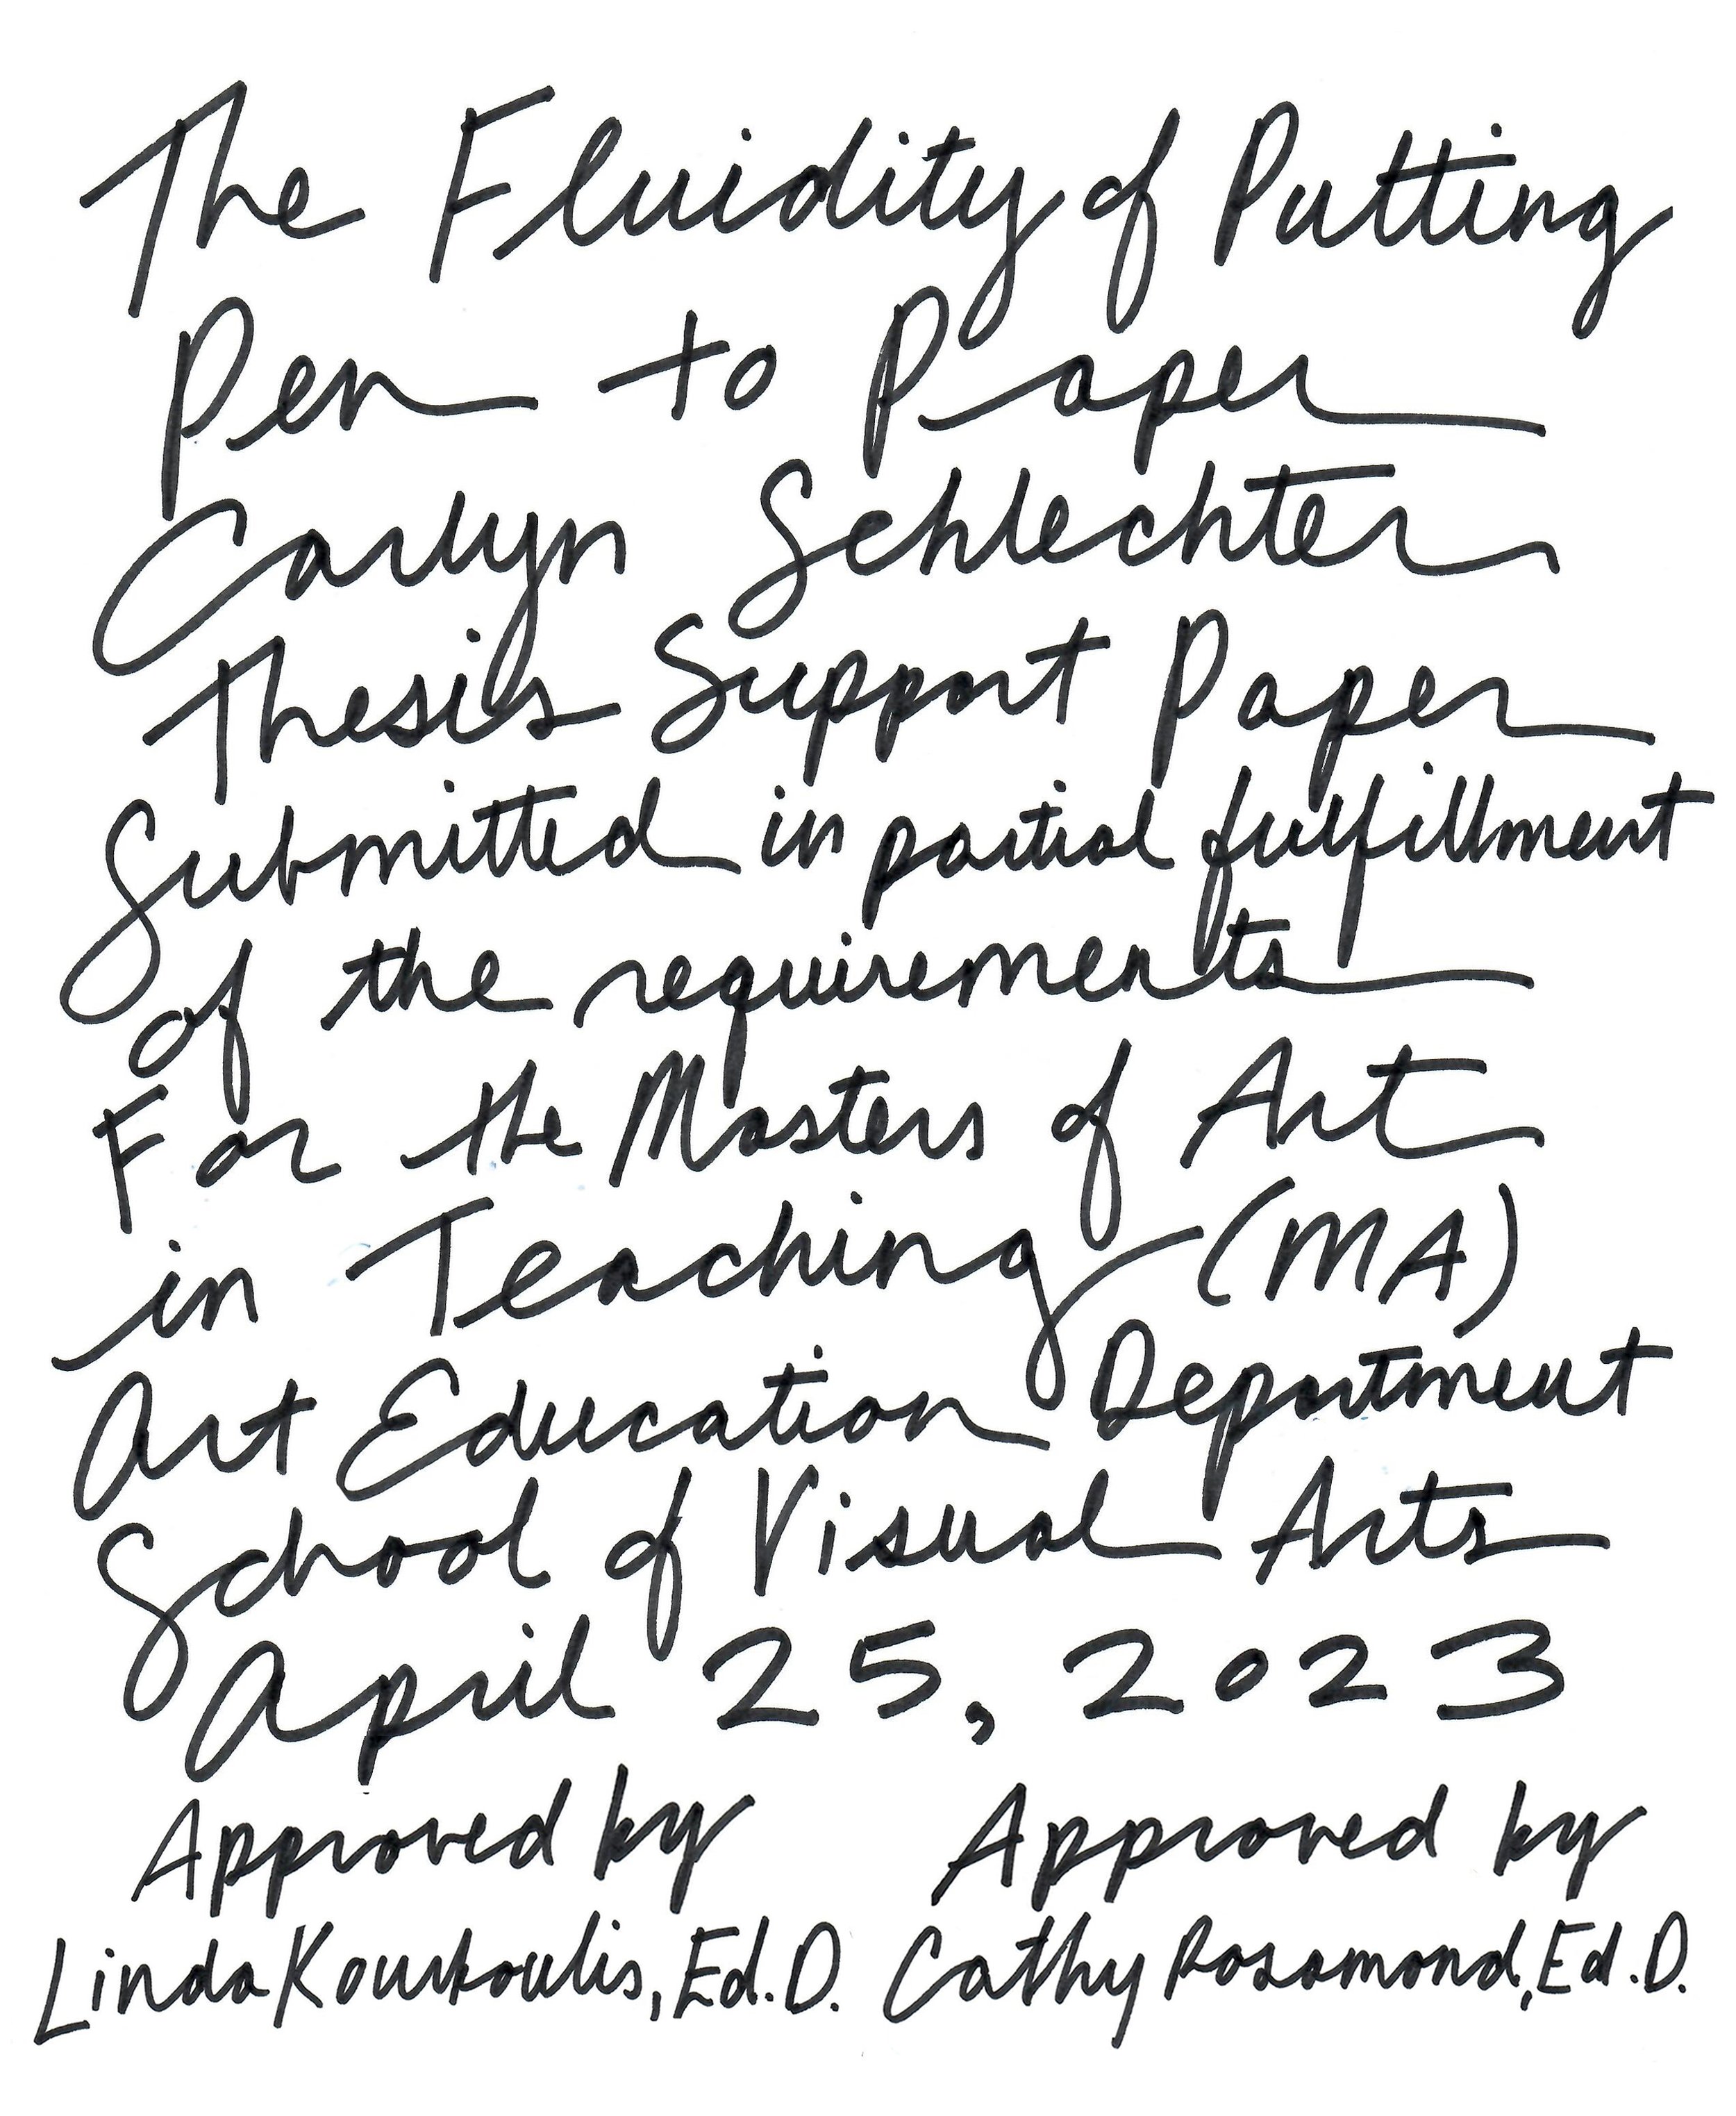 The Fluidity of Putting
Pen to Paper
Carlyn Schlechter
Thesis Support Paper
Submitted in partial fulfillment
of the requirements
For the Masters of Art
in Teaching (MA)
Art Education Department
School of Visual Arts
April 25, 2023
Approved by Approved by
Linda Kourkoulis, Ed.D. Cathy Rosamond, Ed.D.